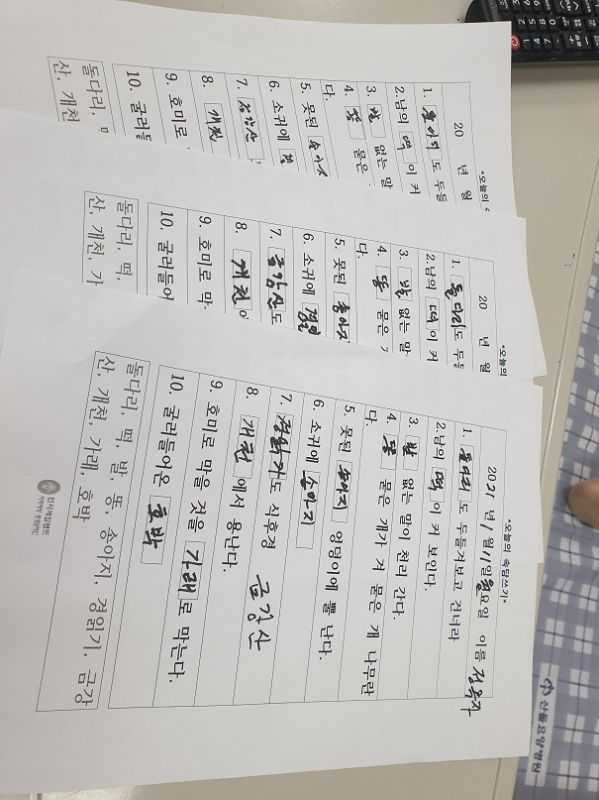 *오늘의
20 년 월
1. 돌다리 도 두들
2.남의 떡 이 커
3. 발 없는 말
4. 똥 묻은
다.
5. 못된 송아지
6. 소귀에
7. 금강산
8. 개천
9. 호미로
10. 굴러들
돌다리, 떡
산, 개천
*오늘의
20 년 월
1. 돌다리 도 두들
2.남의 떡 이 커
3. 발 없는 말
4. 똥 묻은
다.
5. 못된 송아지
6. 소귀에 경읽
7. 금강산 도
8. 개천
9. 호미로 막
10. 굴러들어
돌다리, 떡,
산, 개천, 가
*오늘의 속담쓰기*
2021 년 1 월 11 일 월 요일 이름 정옥자
1. 돌다리 도 두들겨보고 건너라
2.남의 떡 이 커 보인다.
3. 발 없는 말이 천리 간다.
4. 똥 묻은 개가 겨 묻은 개 나무란
다.
5. 못된 송아지 엉덩이에 뿔 난다.
6. 소귀에 송아지
7. 도 식후경 금강산
8. 개천 에서 용난다.
9. 호미로 막을 것을 가래 로 막는다.
10. 굴러들어온 호박
돌다리, 떡, 발, 똥, 송아지, 경읽기, 금강
산, 개천, 가래, 호박
산들요양병원